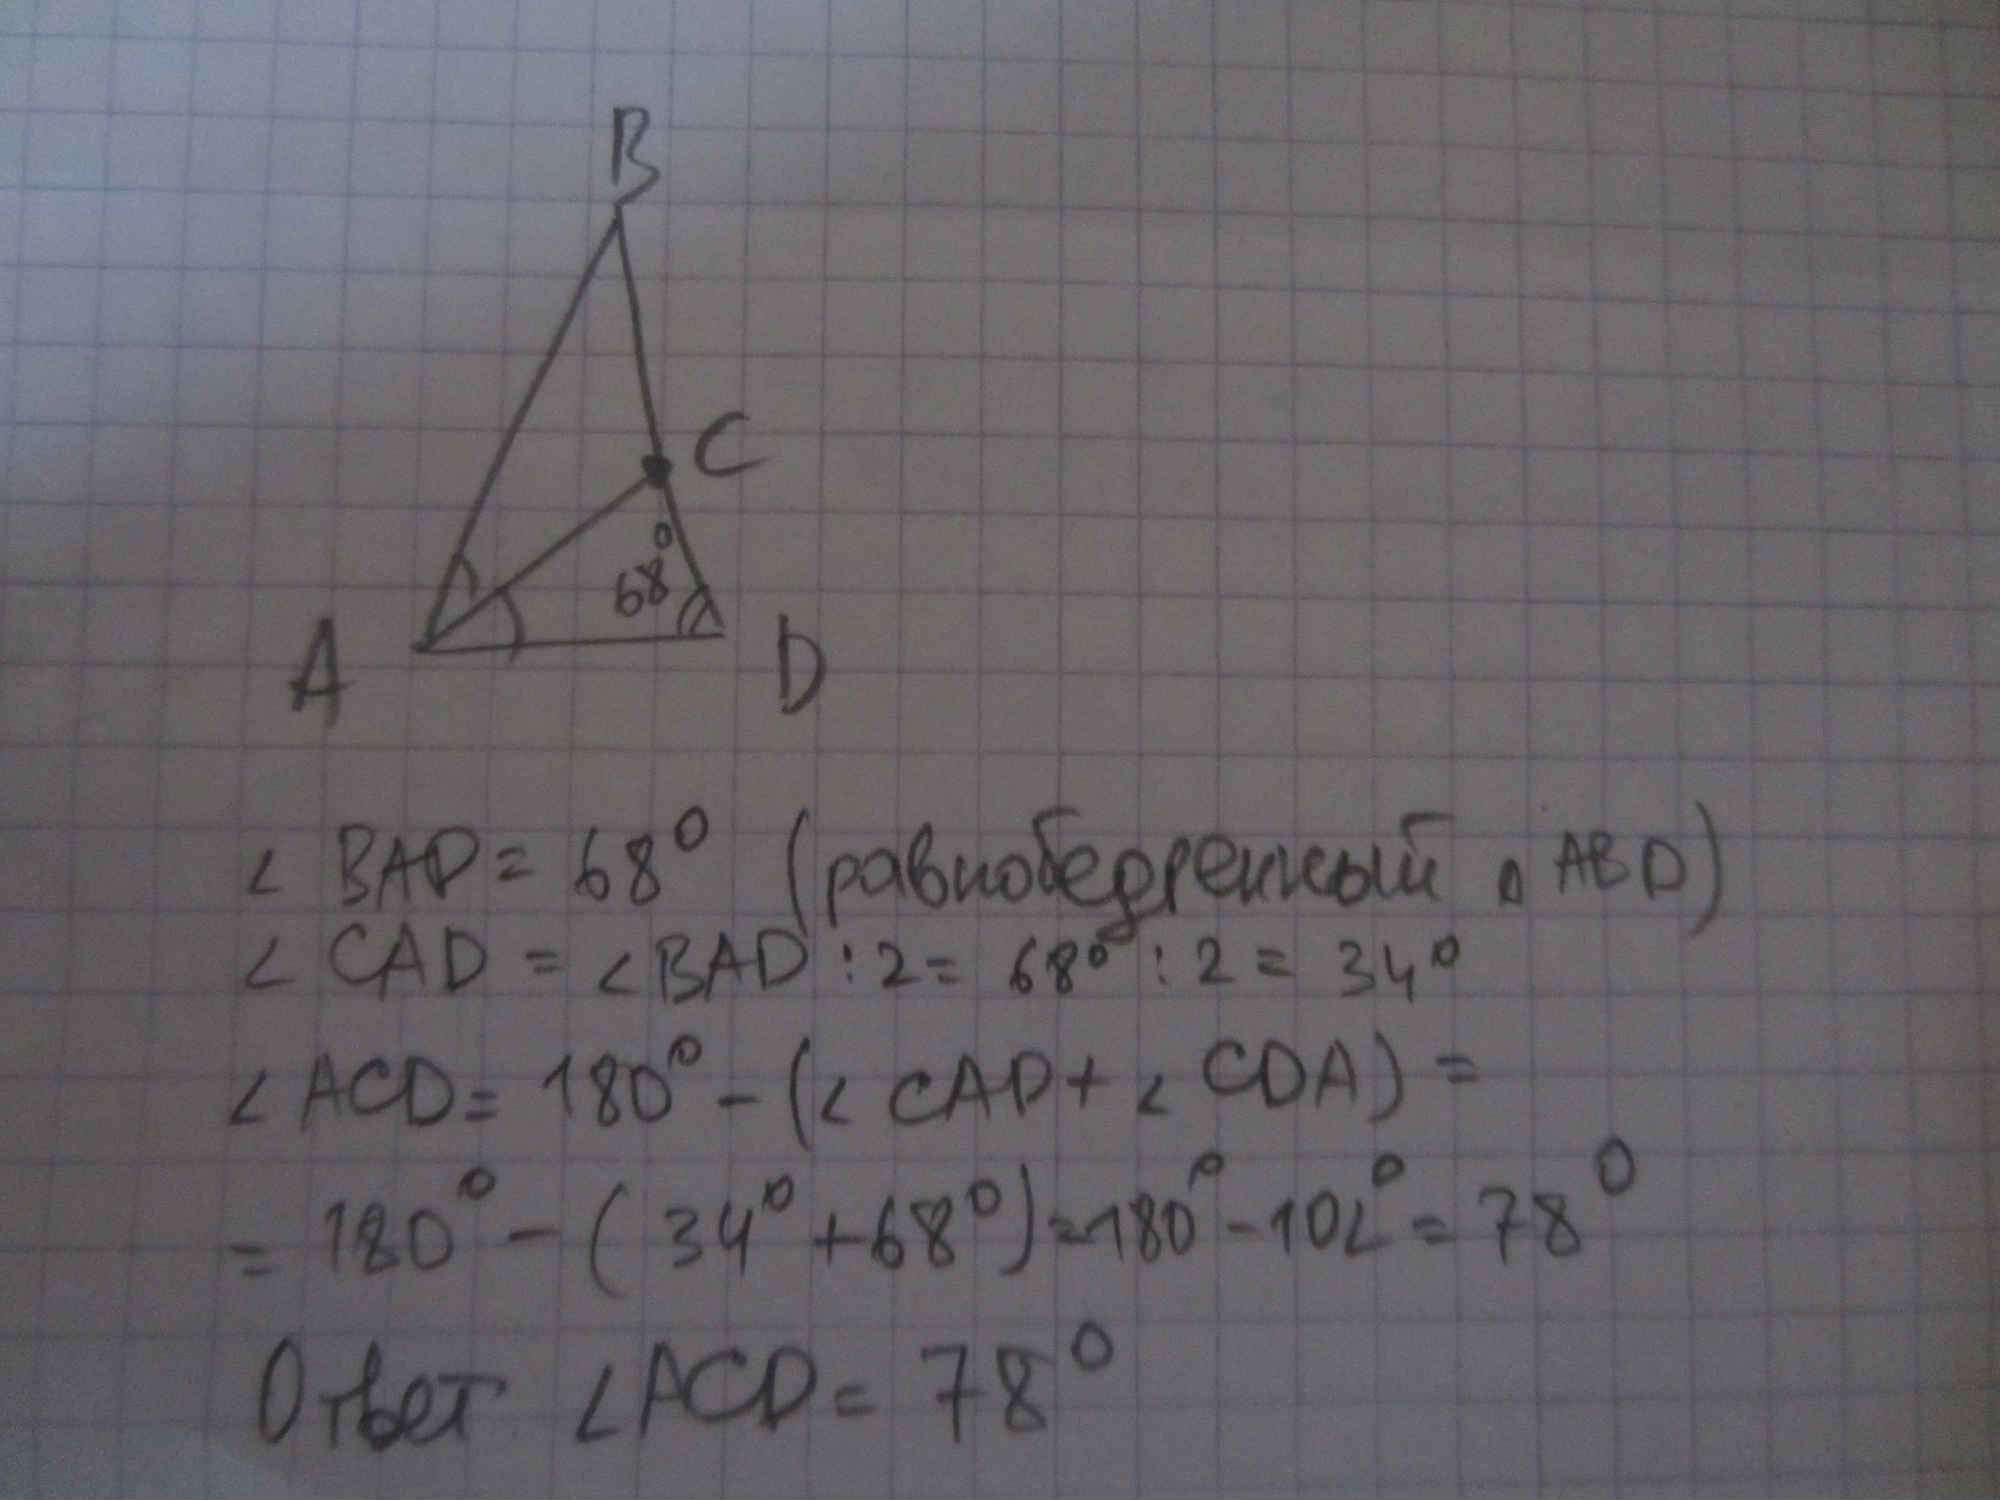 B
C
68°
A D
∠ BAD = 68° (равнобедренный △ ABD)
∠ CAD = ∠ BAD : 2 = 68° : 2 = 34°
∠ ACD = 180° - (∠ CAD + ∠ CDA) =
= 180° - (34° + 68°) = 180° - 102° = 78°
Ответ ∠ACD = 78°